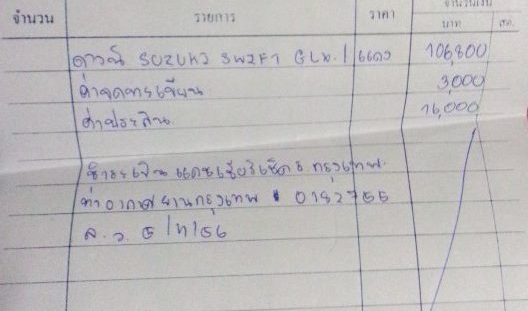 จำนวน รายการ ราคา จำนวนเงิน
บาท สต.
ดาวน์ SUZUKI SWIFT GLX. / แดง 106,800
ค่าจดทะเบียน 3,000
ค่าประกัน 16,000
ชำระเป็น แคชเชียร์เช็ค ธ.กรุงเทพ
ท่าอากาศยานกรุงเทพ 0182755
ล.ว. 5/ /56